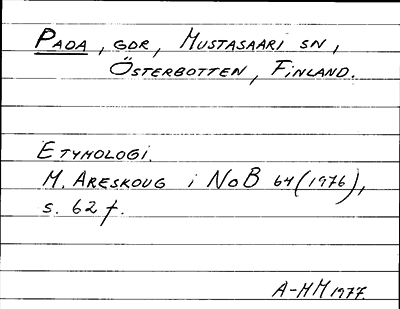 PADA, GDR, MUSTASAARI SN,
ÖSTERBOTTEN, FINLAND.
ETYMOLOGI.
M. ARESKOUG i NoB 64 (1976),
s. 62 f.
A-HM 1977.